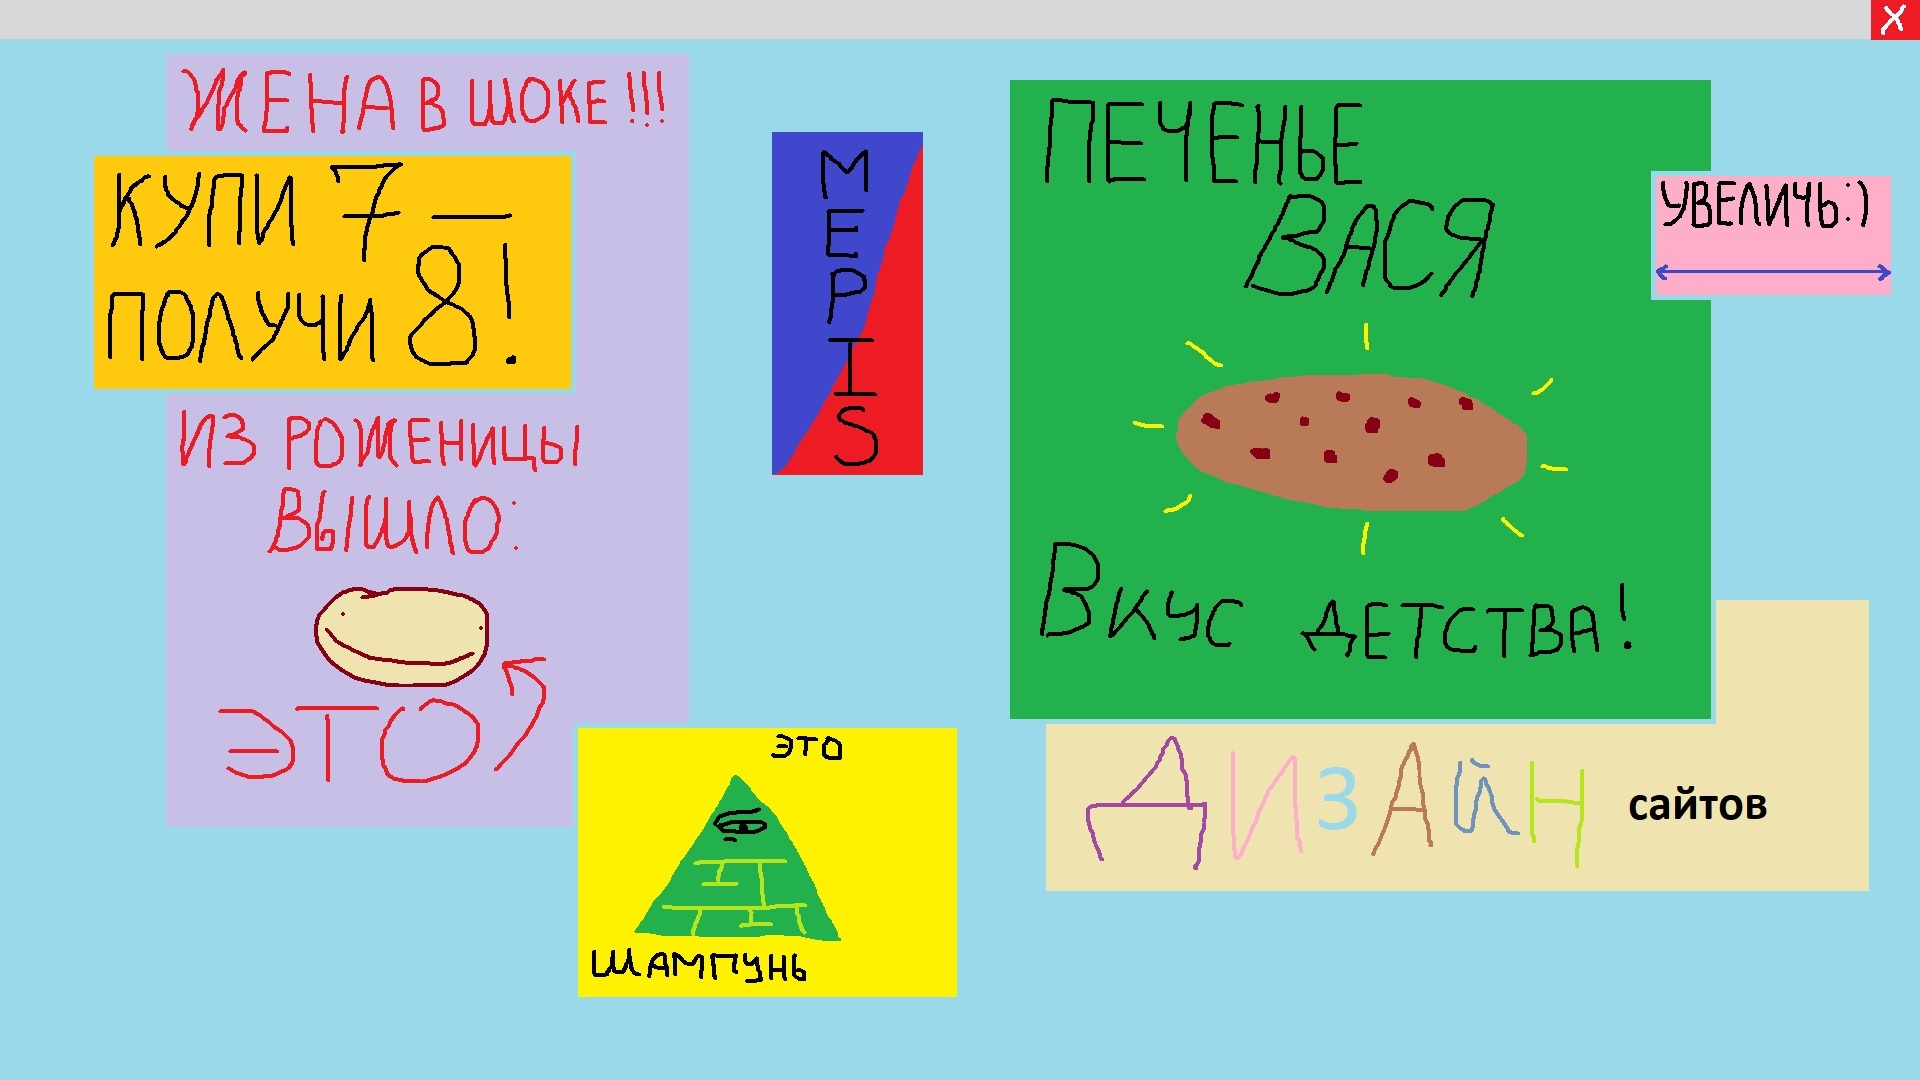 ЖЕНА В ШОКЕ!!!
КУПИ 7 —
ПОЛУЧИ 8!
ИЗ РОЖЕНИЦЫ
ВЫШЛО:
ЭТО
MEPIS
ЭТО
ШАМПУНЬ
ПЕЧЕНЬЕ
ВАСЯ
ВКУС ДЕТСТВА!
УВЕЛИЧЬ:)
ДИЗАЙН сайтов
X